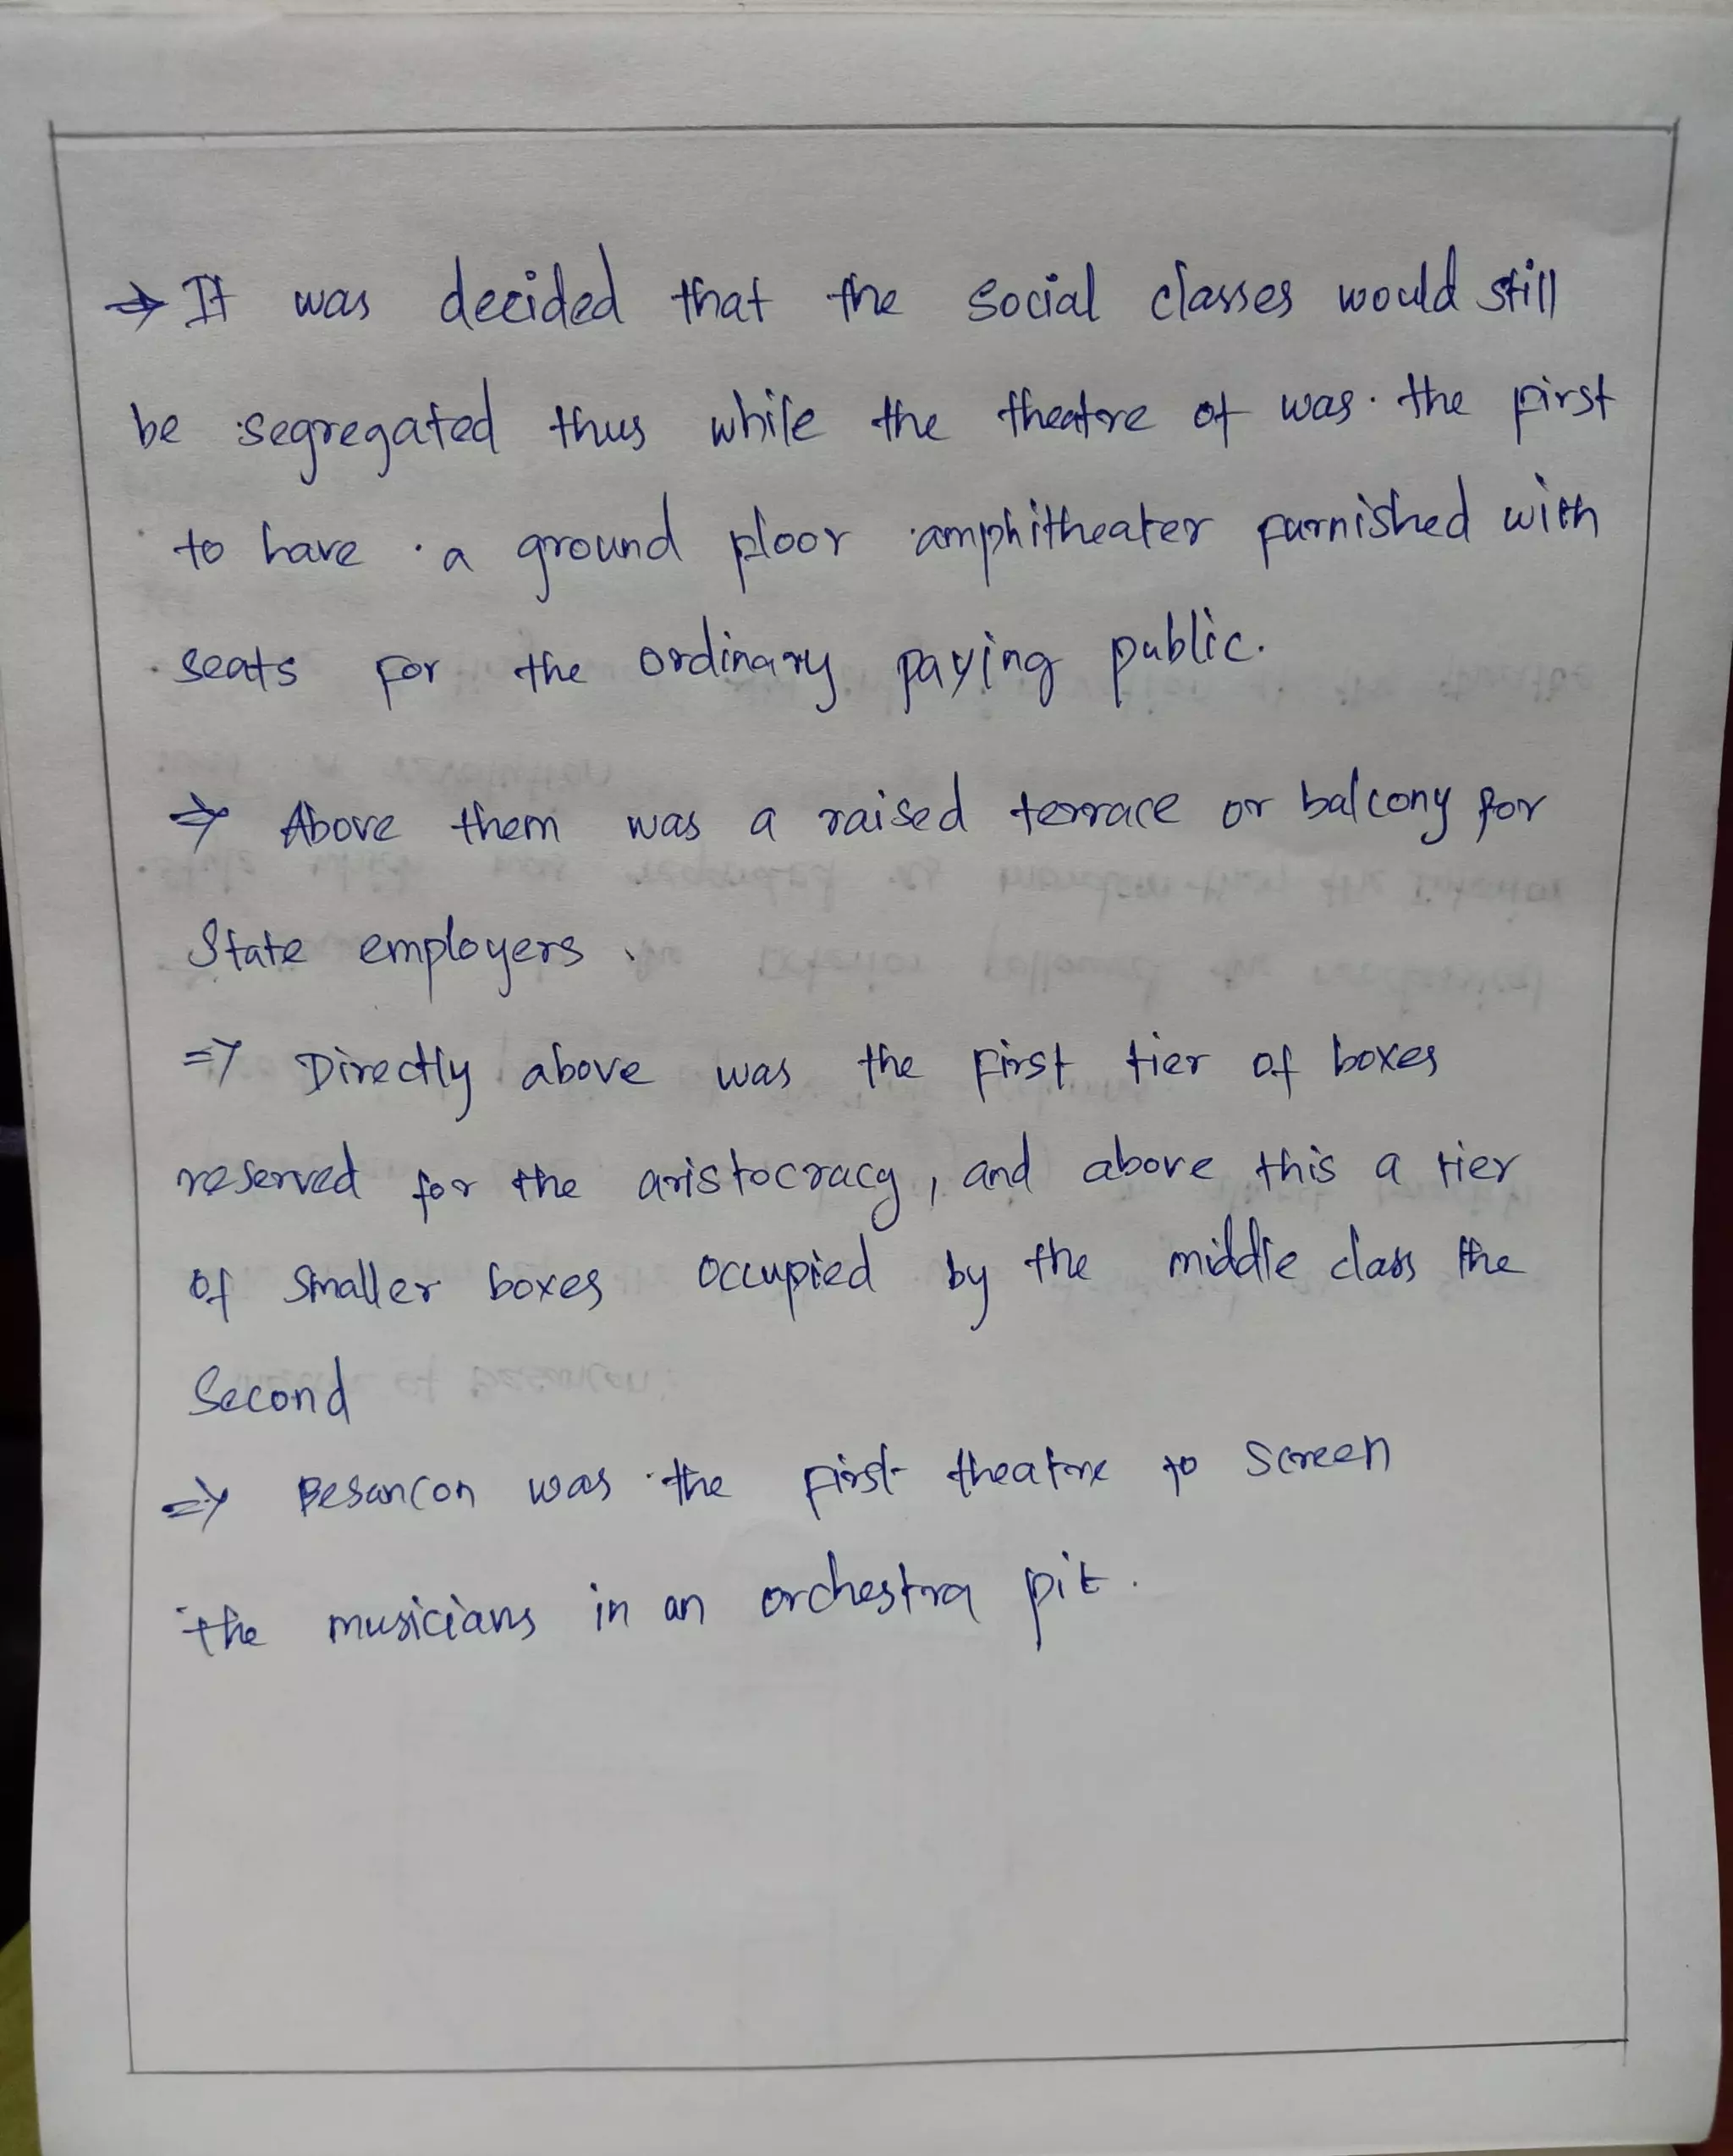 ⇒ It was decided that the social classes would still
be segregated thus while the theatre of was the first
to have a ground floor amphitheater furnished with
seats for the ordinary paying public.
⇒ Above them was a raised terrace or balcony for
State employers.
⇒ Directly above was the first tier of boxes
reserved for the aristocracy, and above this a tier
of smaller boxes occupied by the middle class the
Second
⇒ Besancon was the first theatre to screen
the musicians in an orchestra pit.